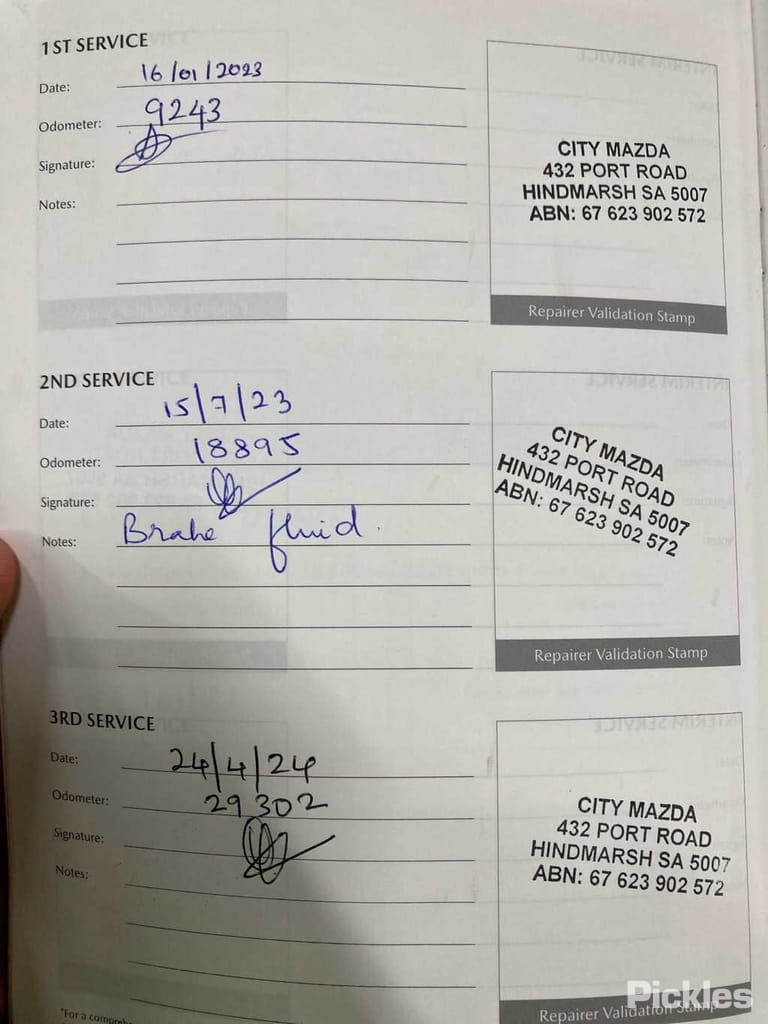 1ST SERVICE
Date: 16/01/2023
Odometer: 9243
Signature:
Notes:
CITY MAZDA
432 PORT ROAD
HINDMARSH SA 5007
ABN: 67 623 902 572
Repairer Validation Stamp
2ND SERVICE
Date: 15/7/23
Odometer: 18895
Signature:
Notes: Brake fluid.
CITY MAZDA
432 PORT ROAD
HINDMARSH SA 5007
ABN: 67 623 902 572
Repairer Validation Stamp
3RD SERVICE
Date: 24/4/24
Odometer: 29302
Signature:
Notes:
CITY MAZDA
432 PORT ROAD
HINDMARSH SA 5007
ABN: 67 623 902 572
Repairer Validation Stamp
Pickles
*For a